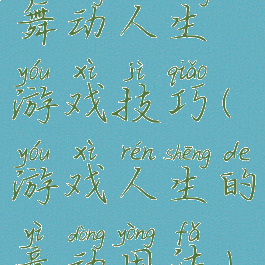 舞动人生
yóu xì jì qiǎo
游戏技巧(
yóu xì rén shēng de
游戏人生的
yì dòng yòng fǎ